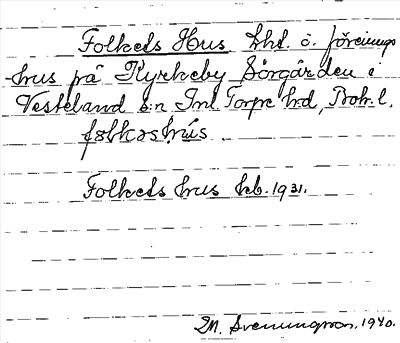 Folkets Hus lht. o. förenings
hus på Kyrkeby Sörgården i
Vesteland s:n Inl Torpe hd, Boh. l.
folkəs hús .
Folkets hus kb. 1931.
M. Svenungsson. 1940.